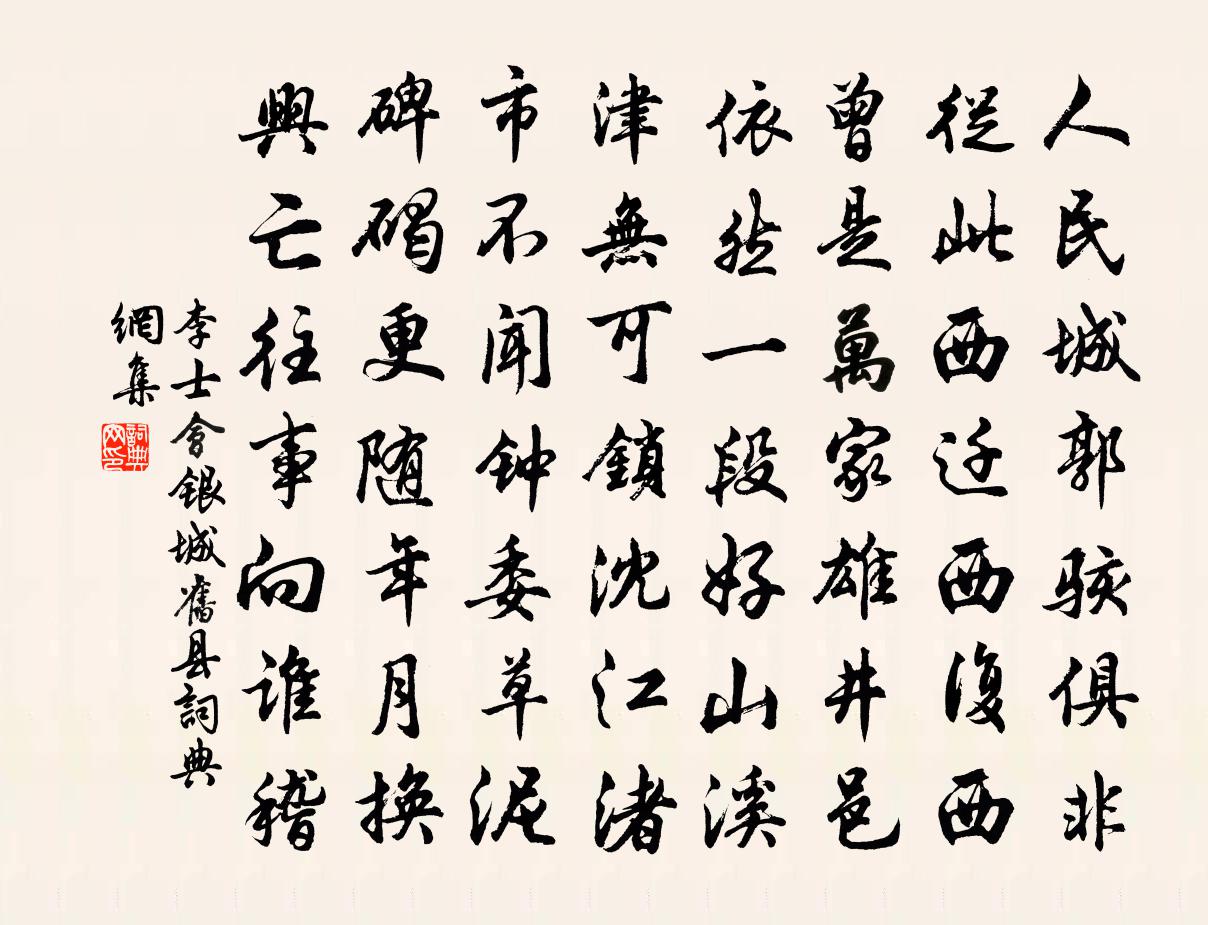 人民城郭駭俱非
從此西迁西復西
曾是萬家雄井邑
依然一段好山溪
津無可鎖沈江渚
市不闻钟委草泥
碑碣更随年月換
興亡往事向谁稽
李士會銀城舊县詞典
網集
詞典
网印